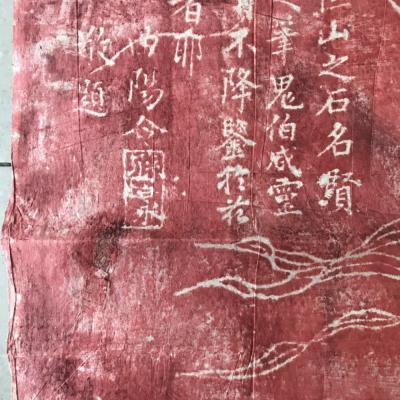 山之石名賢
筆鬼伯威靈
不降鑒於茲
者耶
陽令
題